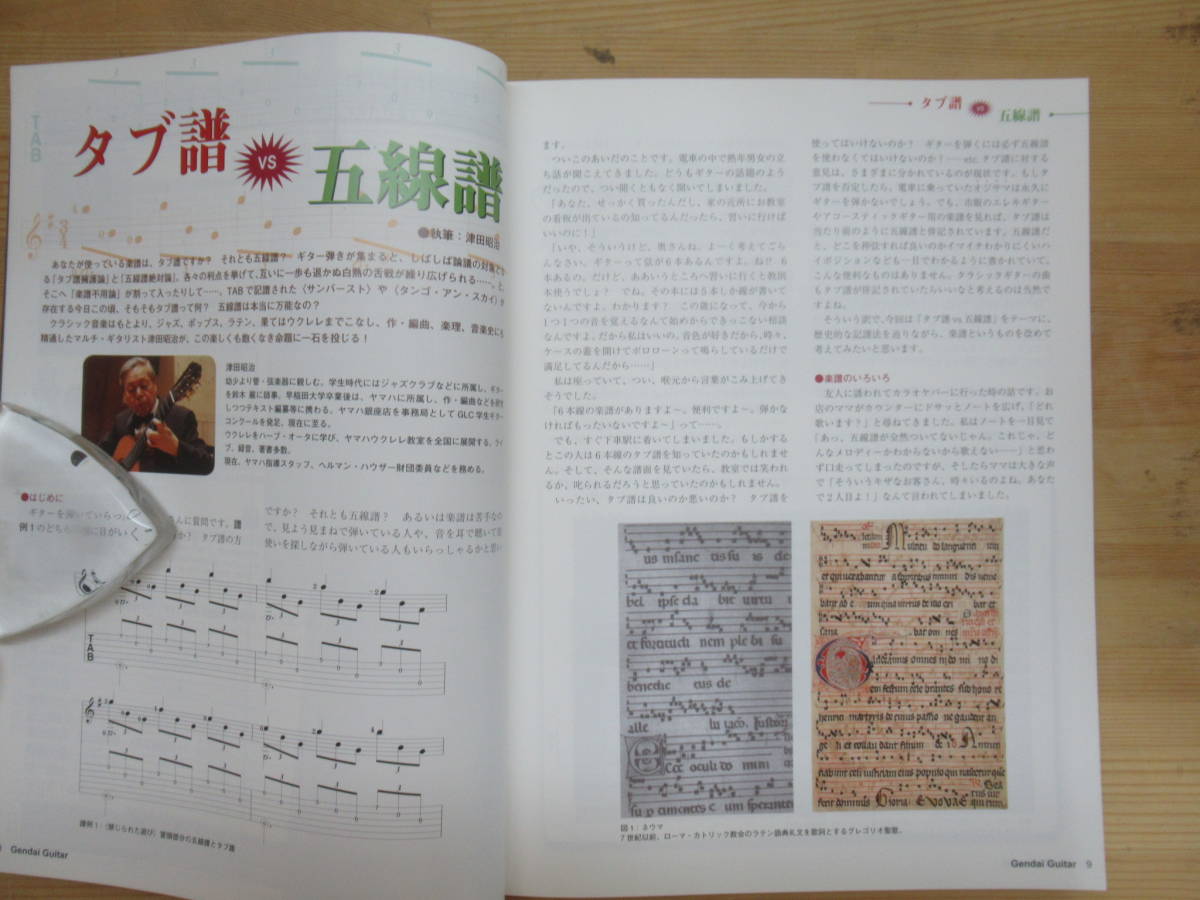 TAB
タブ譜
VS
五線譜
●執筆：津田昭治
あなたが使っている楽譜は、タブ譜ですか？ それとも五線譜？ ギター弾きが集まると、しばしば論議の対象とな
る「タブ譜擁護論」と「五線譜絶対論」。各々の利点を挙げて、互いに一歩も退かぬ白熱の舌戦が繰り広げられる……。と、
そこへ「楽譜不用論」が割って入ったりして……。TABで記譜された〈サンバースト〉や〈タンゴ・アン・スカイ〉が
存在する今日この頃、そもそもタブ譜って何？ 五線譜は本当に万能なの？
クラシック音楽はもとより、ジャズ、ポップス、ラテン、果てはウクレレまでこなし、作・編曲、楽理、音楽史にも
精通したマルチ・ギタリスト津田昭治が、この楽しくも飽くなき命題に一石を投じる！
津田昭治
幼少より管・弦楽器に親しむ。学生時代にはジャズクラブなどに所属し、ギター
を鈴木 巌に師事。早稲田大学卒業後は、ヤマハに所属し、作・編曲などを研究
しつつテキスト編纂等に携わる。ヤマハ銀座店を事務局としてGLC学生ギター
コンクールを発足、現在に至る。
ウクレレをハーブ・オータに学び、ヤマハウクレレ教室を全国に展開する。ライ
ブ、録音、著書多数。
現在、ヤマハ指導スタッフ、ヘルマン・ハウザー財団委員などを務める。
●はじめに
ギターを
さんに質問です。譜
例1のどち
に目がいく
か？ タブ譜の方
ですか？ それとも五線譜？ あるいは楽譜は苦手なの
で、見よう見まねで弾いている人や、音を耳で聴いて指
使いを探しながら弾いている人もいらっしゃるかと思い
TAB
譜例1：〈禁じられた遊び〉冒頭部分の五線譜とタブ譜
Gendai Guitar
タブ譜 VS 五線譜
ます。
ついこのあいだのことです。電車の中で熟年男女の立
ち話が聞こえてきました。どうもギターの話題のよう
だったので、つい聞くともなく聞いてしまいました。
「あなた、せっかく買ったんだし、家の近所にお教室
の看板が出ているの知ってるんだったら、習いに行けば
いいのに！」
「いや、そういうけど、奥さんね。よーく考えてごら
んなさい。ギターって弦が6本あるんですよ。ね!? 6
本あるの。だけど、ああいうところへ習いに行くと教則
本使うでしょ？ でね。その本には5本しか線が書いて
ないんですよ。わかります？ この歳になって、今から
1つ1つの音を覚えるなんて始めからできっこない相談
なんですよ。だから私はいいの。音色が好きだから、時々、
ケースの蓋を開けてポロローンって鳴らしているだけで
満足してるんだから……」
私は座っていて、つい、喉元から言葉がこみ上げてき
そうでした。
「6本線の楽譜がありますよ〜。便利ですよ〜。弾かな
ければもったいないですよ〜」って……。
でも、すぐ下車駅に着いてしまいました。もしかする
とこの人は6本線のタブ譜を知っていたのかもしれませ
ん。そして、そんな譜面を見ていたら、教室では笑われ
るか、叱られるだろうと思っていたのかもしれません。
いったい、タブ譜は良いのか悪いのか？ タブ譜を
使ってはいけないのか？ ギターを弾くには必ず五線譜
を使わなくてはいけないのか？……etc. タブ譜に対する
意見は、さまざまに分かれているのが現状です。もしタ
ブ譜を否定したら、電車に乗っていたオジサマは永久に
ギターを弾かないでしょう。でも、市販のエレキギター
やアコースティックギター用の楽譜を見れば、タブ譜は
当たり前のように五線譜と併記されています。五線譜だ
と、どこを押弦すれば良いのかイマイチわかりにくいハ
イポジションなども一目でわかるように書かれていて、
こんな便利なものはありません。クラシックギターの曲
もタブ譜が併記されていたらいいなと考えるのは当然で
すよね。
そういう訳で、今回は「タブ譜vs.五線譜」をテーマに、
歴史的な記譜法を辿りながら、楽譜というものを改めて
考えてみたいと思います。
●楽譜のいろいろ
友人に誘われてカラオケバーに行った時の話です。お
店のママがカウンターにドサッとノートを広げ、「どれ
歌います？」と尋ねてきました。私はノートを一目見て
「あっ、五線譜が全然ついてないじゃん。これじゃ、ど
んなメロディーかわからないから歌えない……」と思わ
ず口走ってしまったのですが、そしたらママは大きな声
で「そういうキザなお客さん、時々いるのよね。あなた
で2人目よ！」なんて言われてしまいました。
図1：ネウマ
7世紀以前、ローマ・カトリック教会のラテン語典礼文を歌詞とするグレゴリオ聖歌。
Gendai Guitar 9